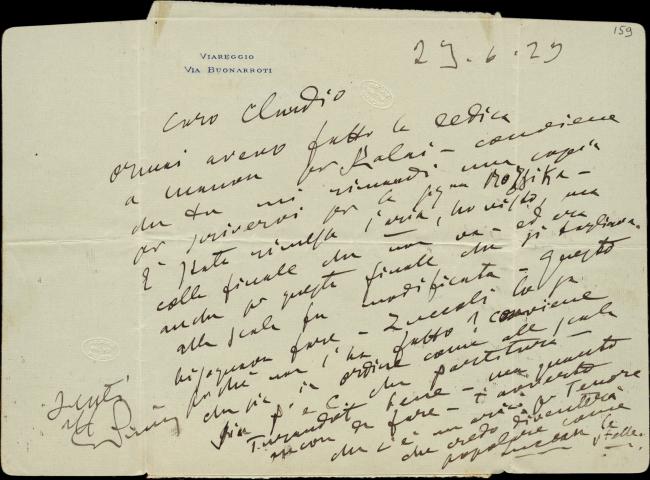 159
VIAREGGIO
VIA BUONARROTI
23.6.23
caro Claudio
ormai avevo fatto la dedica
a manon per - conviene
che tu mi rimandi una copia
per scrivervi per la
È stata rimessa l'aria, ho visto, ma
colla finale che non va - ed era
anche per questo finale che si tagliava.
alla Scala fu modificata - questo
bisognava fare - Zuccoli lo sa
perchè non l'ha fatto? conviene
che sia in ordine come alla Scala
sia p. e c. che partitura -
Turandot bene - ma quanto
ancora da fare - t'avverto
che c'è un'aria p. Tenore
che credo diventerà
popolare come
Lucean le
stelle.